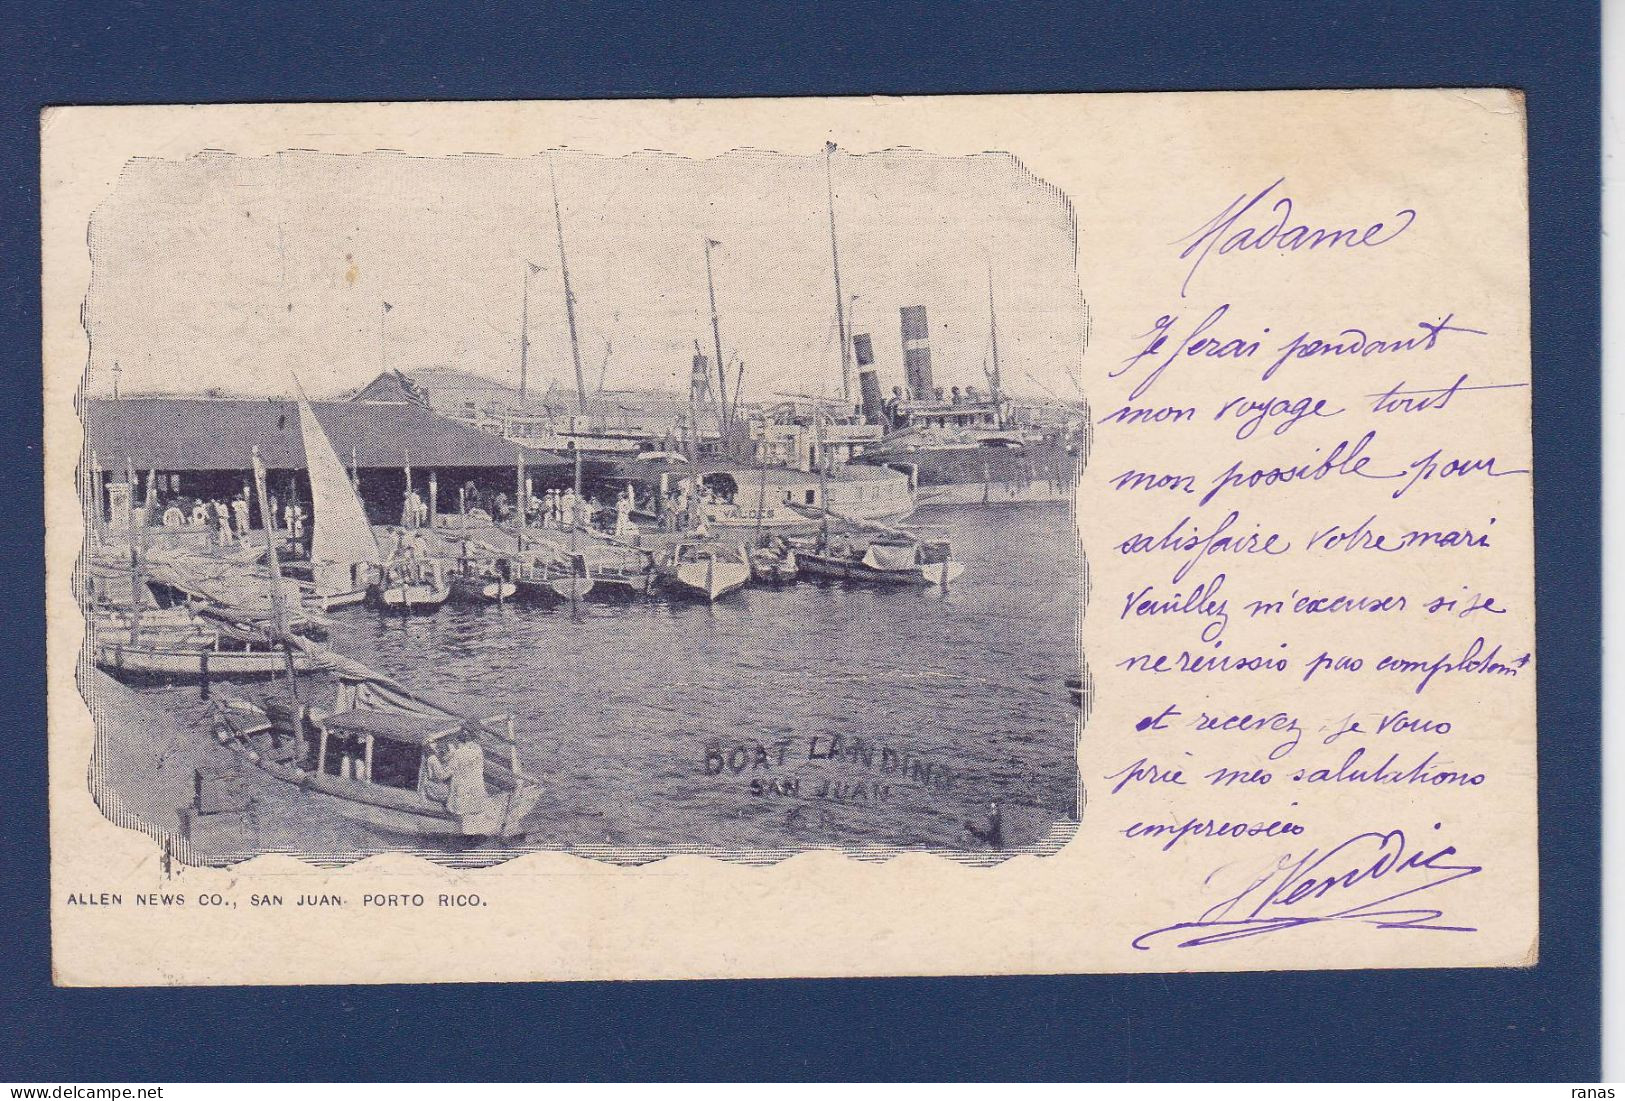 VALDES
BOAT LANDING
SAN JUAN
P.R.
ALLEN NEWS CO., SAN JUAN. PORTO RICO.
Madame
Je ferai pendant
mon voyage tout
mon possible pour
satisfaire votre mari
Veuillez m'excuser si je
ne réussis pas completemt
et recevez, je vous
prie mes salutations
empressées
Verdié
ranas